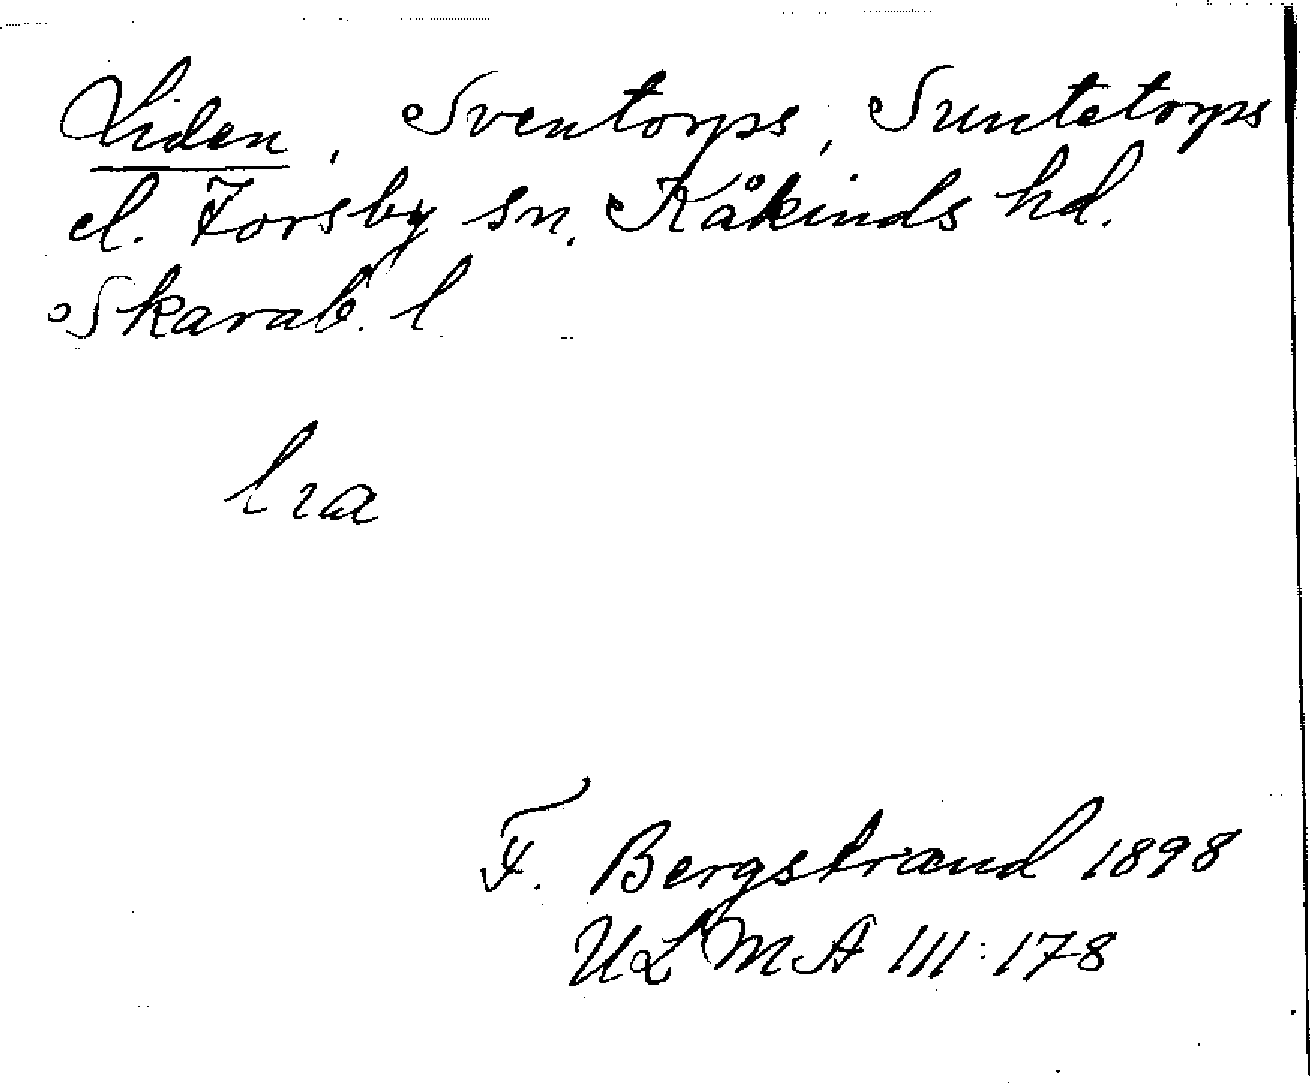 Liden, Sventorps, Suntetorps
el. Forsby sn. Kåkinds hd.
Skarab. l
F. Bergstrand 1898
ULMA 111:178